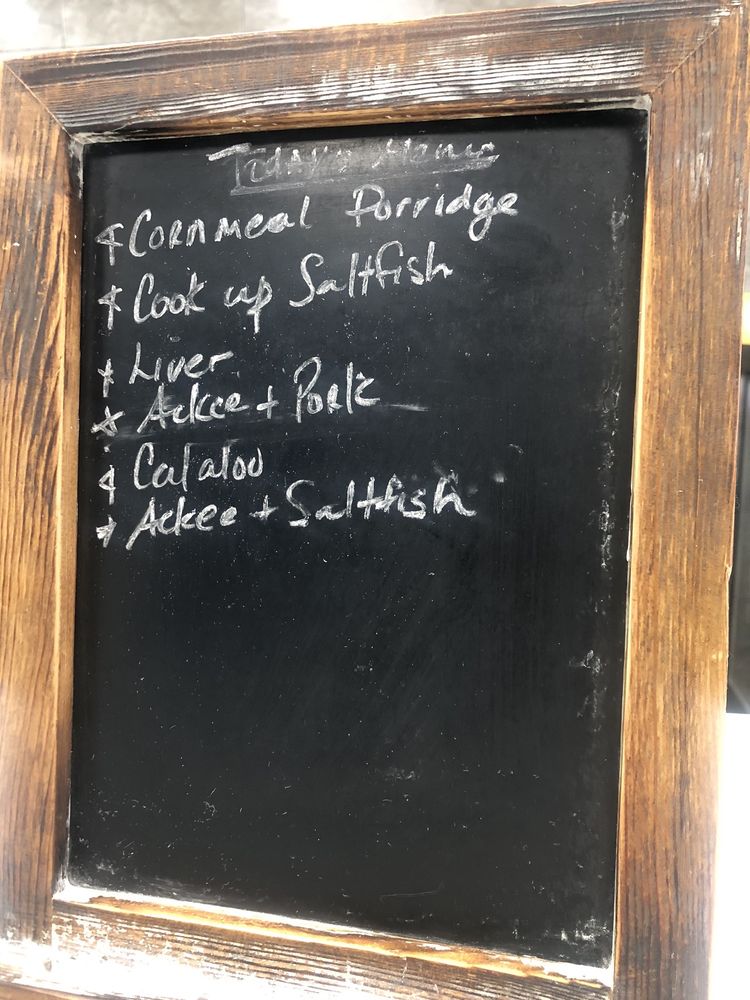 Today's Menu
* Cornmeal Porridge
* Cook up Saltfish
* Liver
* Ackee + Pork
* Calaloo
* Ackee + Saltfish